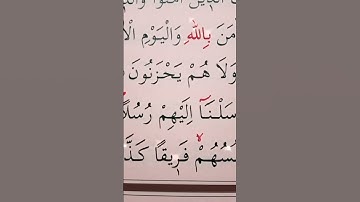 الَّذِينَ اٰمَنُوا
مَنَ بِاللّٰهِ وَالْيَوْمِ الْاٰ
وَلَا هُمْ يَحْزَنُونَ
سَلْنَٓا اِلَيْهِمْ رُسُلًا
سُهُمْ فَرٖيقًا كَذَّ